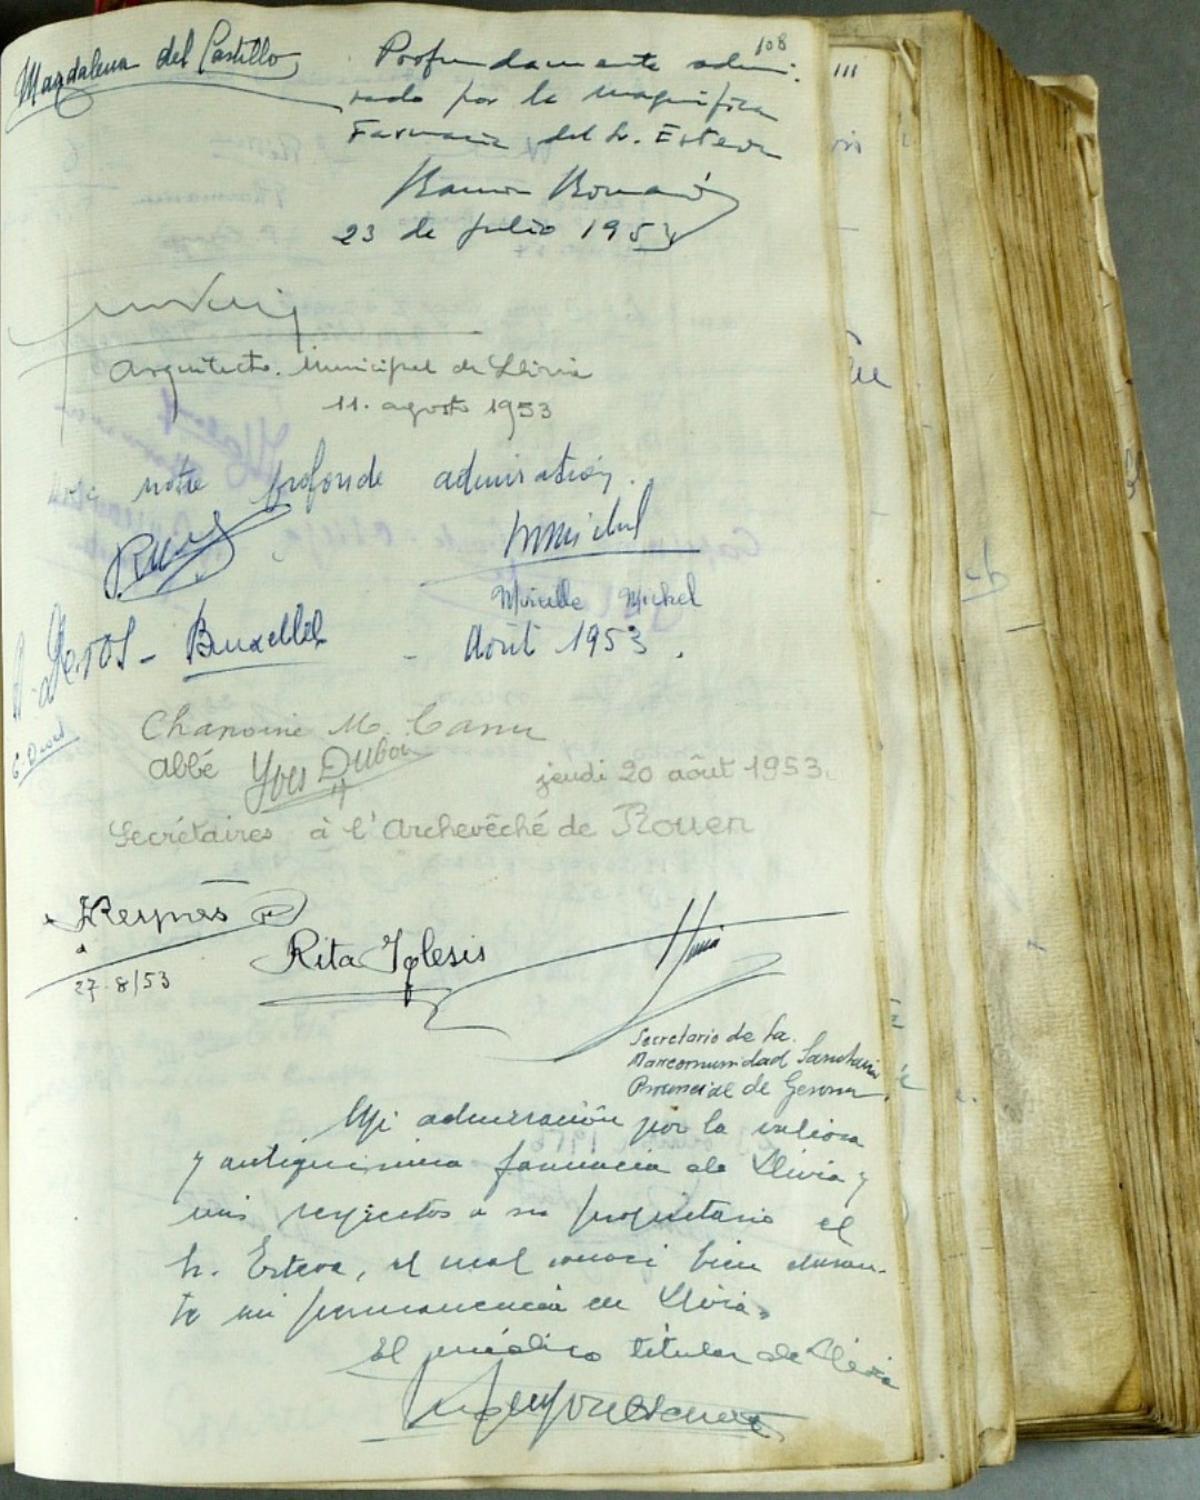 108
Magdalena del Castillo
Profundamente admi-
rado por la magnífica
Farmacia del Sr. Esteva
Ramon
23 de julio 1953
111
Arquitecto. Municipal de Llivia
11. agosto 1953
notre profonde admiration.
MMichel
Mireille Michel
Bruxelles - Août 1953.
Chanoine M. Canu
abbé Yves Dubois
jeudi 20 août 1953.
Secrétaires à l'Archevêché de Rouen
27-8/53
Rita Iglesis
Secretario de la
Mancomunidad Sanitaria
Provincial de Gerona
Mi admiración por la valiosa
y antiquisima farmacia de Llivia y
mis respectos a su propietario el
Sr. Esteva, el cual conoci bien duran-
te mi permanencia en Llivia.
El médico titular de Llivia